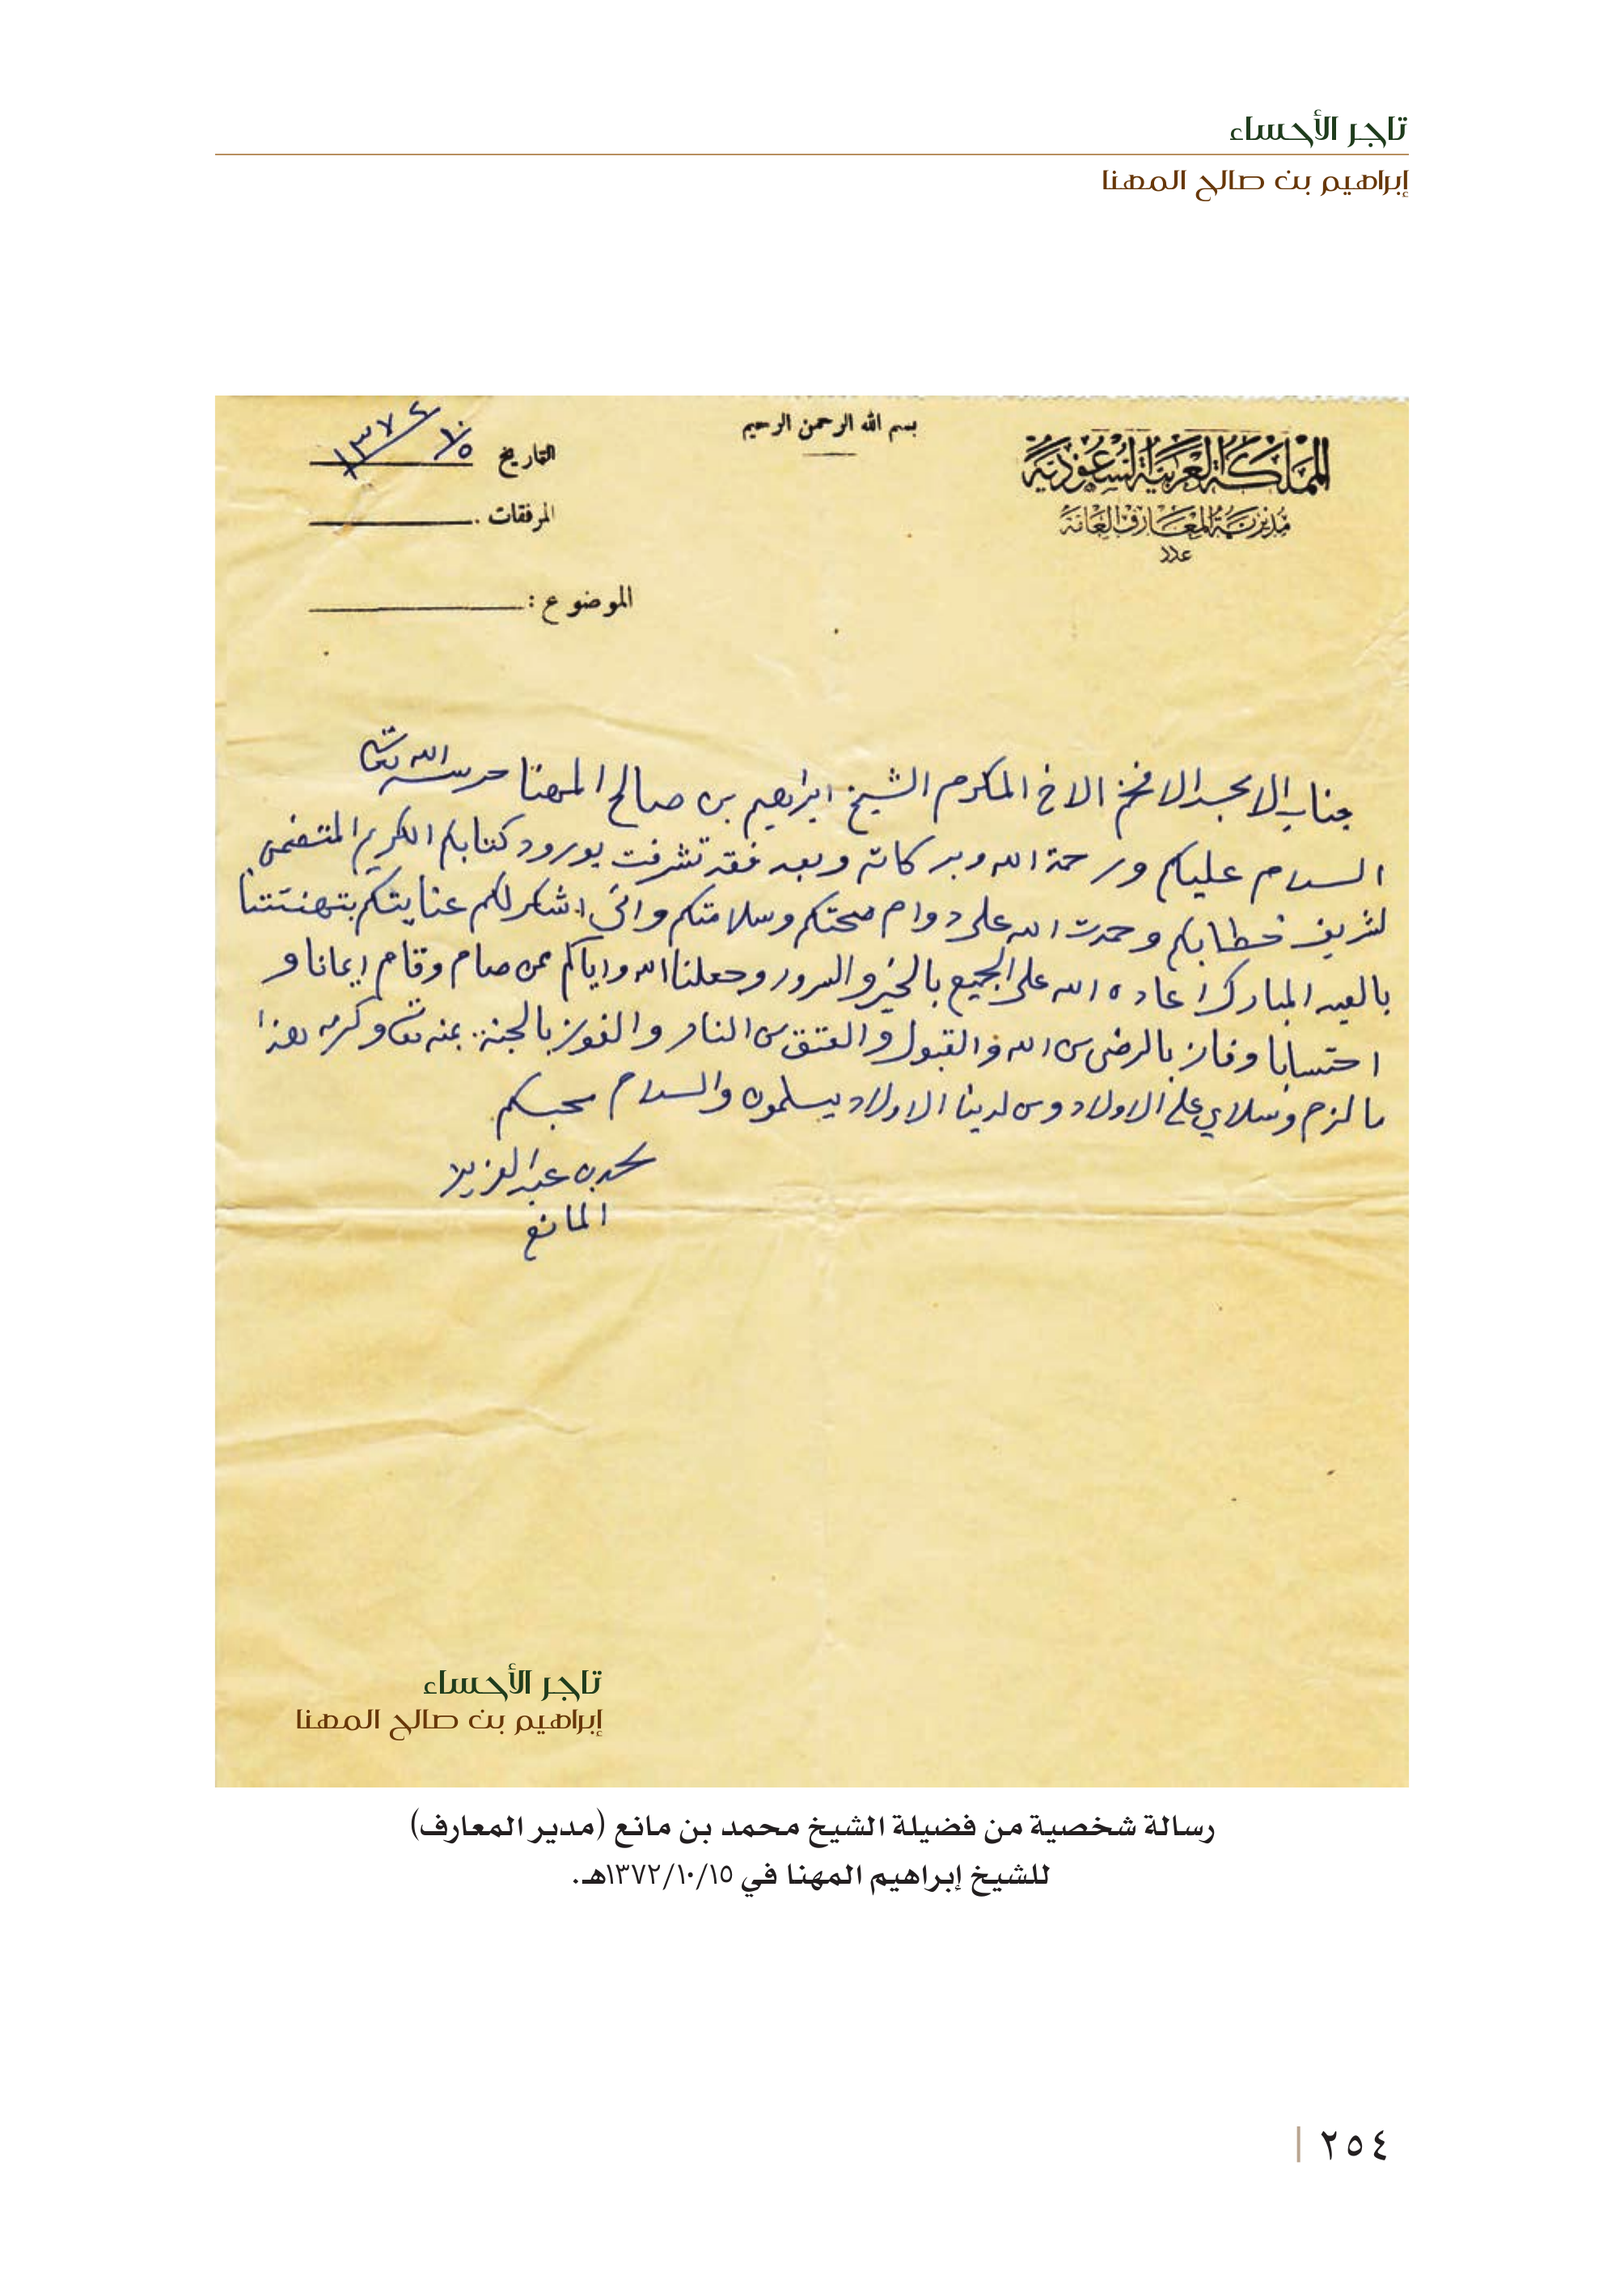 تاجر الأحساء
إبراهيم بن صالح المهنا
بسم الله الرحمن الرحيم
المملكة العربية السعودية
مديرية المعارف العامة
عدد
التاريخ
المرفقات
الموضوع :
جناب الامجد الافخم الاخ المكرم الشيخ ابراهيم بن صالح المهنا حرسه الله تعالى
السلام عليكم ورحمة الله وبركاته وبعد فقد تشرفت بورود كتابكم الكريم المتضمن
لشريف خطابكم وحمدت الله على دوام صحتكم وسلامتكم واني اشكر لكم عنايتكم بتهنئتنا
بالعيد المبارك اعاده الله على الجميع بالخير والسرور وجعلنا الله واياكم ممن صام وقام ايمانا و
احتسابا وفاز بالرضى من الله والقبول والعتق من النار والفوز بالجنة بمنه تعالى وكرمه هذا
ما لزم وسلامي على الاولاد ومن لدينا الاولاد يسلمون والسلام محبكم
محمد بن عبد العزيز
المانع
تاجر الأحساء
إبراهيم بن صالح المهنا
رسالة شخصية من فضيلة الشيخ محمد بن مانع (مدير المعارف)
للشيخ إبراهيم المهنا في ١٣٧٢/١٠/١٥هـ.
٢٥٤